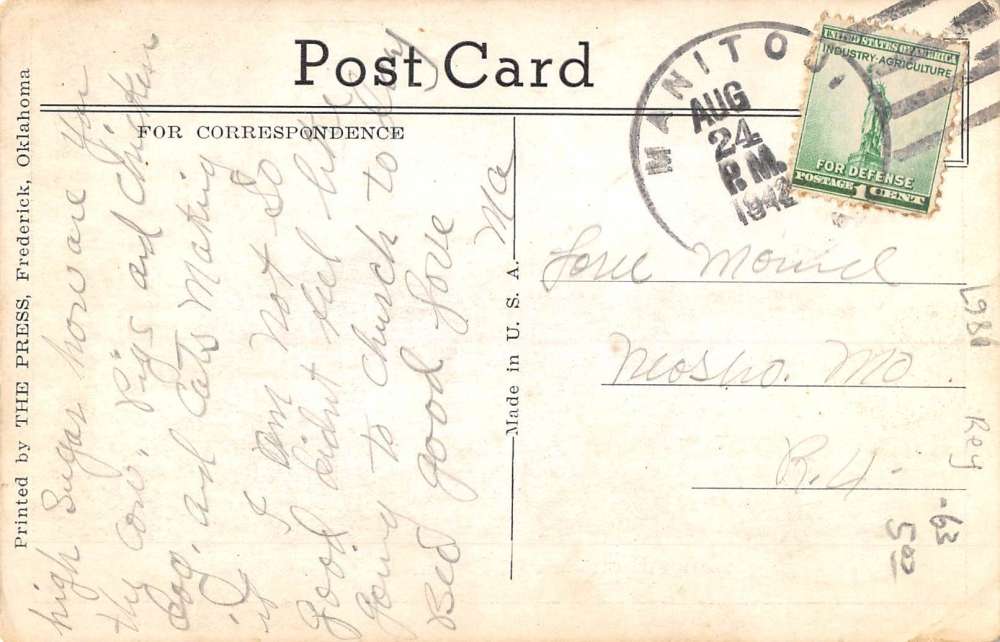 Post Card
FOR CORRESPONDENCE
Printed by THE PRESS, Frederick, Oklahoma
Made in U. S. A.
MANITOU.
AUG
24
P.M.
1942
UNITED STATES OF AMERICA
INDUSTRY-AGRICULTURE
FOR DEFENSE
POSTAGE 1 CENT
high Sugar how are
the cow, Pigs and chicken
Dog, and Cats Making
it I am Not So
good didnt feel like
going to church to day
Bed good love
Ma
Neosho. Mo
R.4.
Rey
-63
500